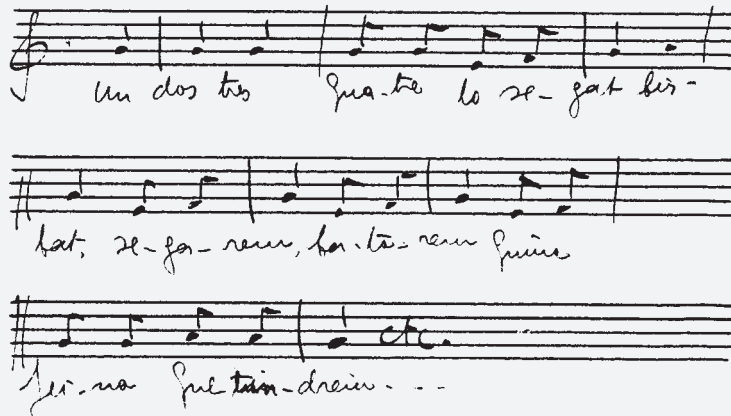 un dos tres qua-tre lo se-gat bis-
bat, se-ga-rem, ba-ta-rem quina
fei-na que tin-dreim - - -
etc.